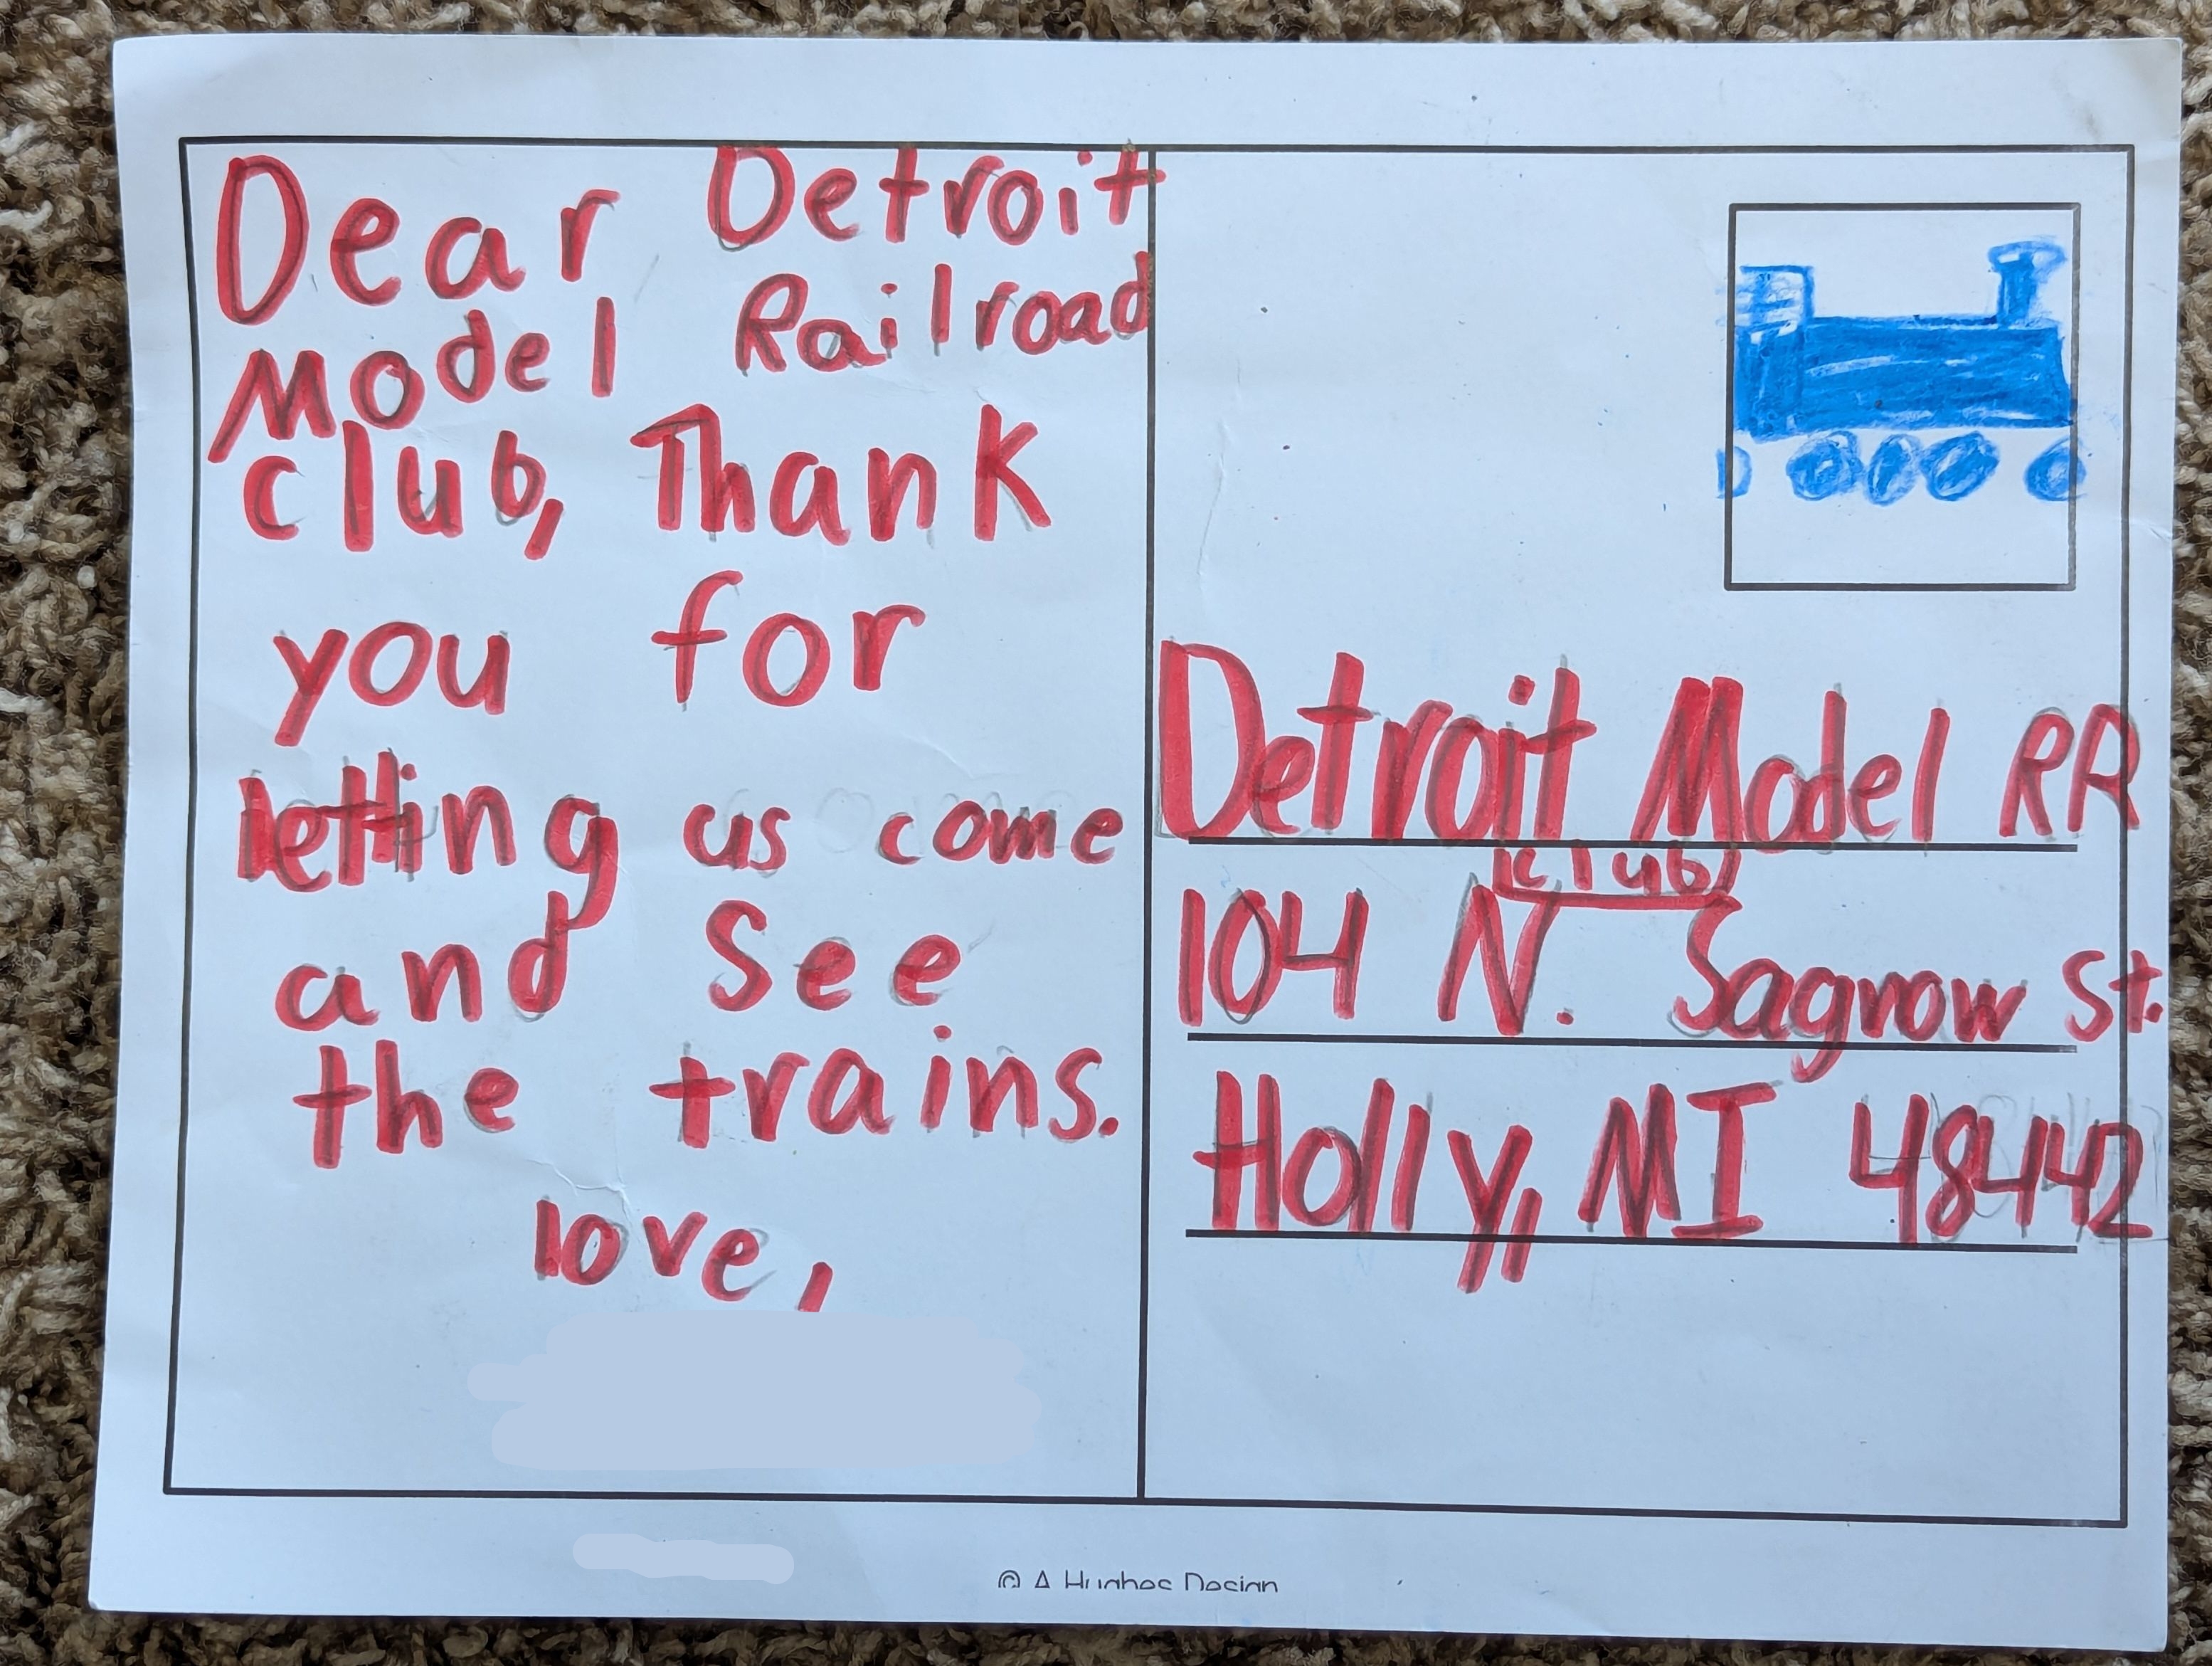 Dear Detroit
Model Railroad
club, Thank
you for
letting us come
and See
the trains.
love,
Detroit Model RR
(club)
104 N. Sagrow St.
Holly, MI 48442
© A Hughes Design